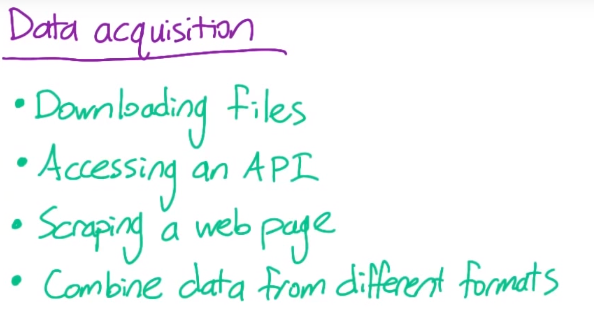 Data acquisition
• Downloading files
• Accessing an API
• Scraping a web page
• Combine data from different formats